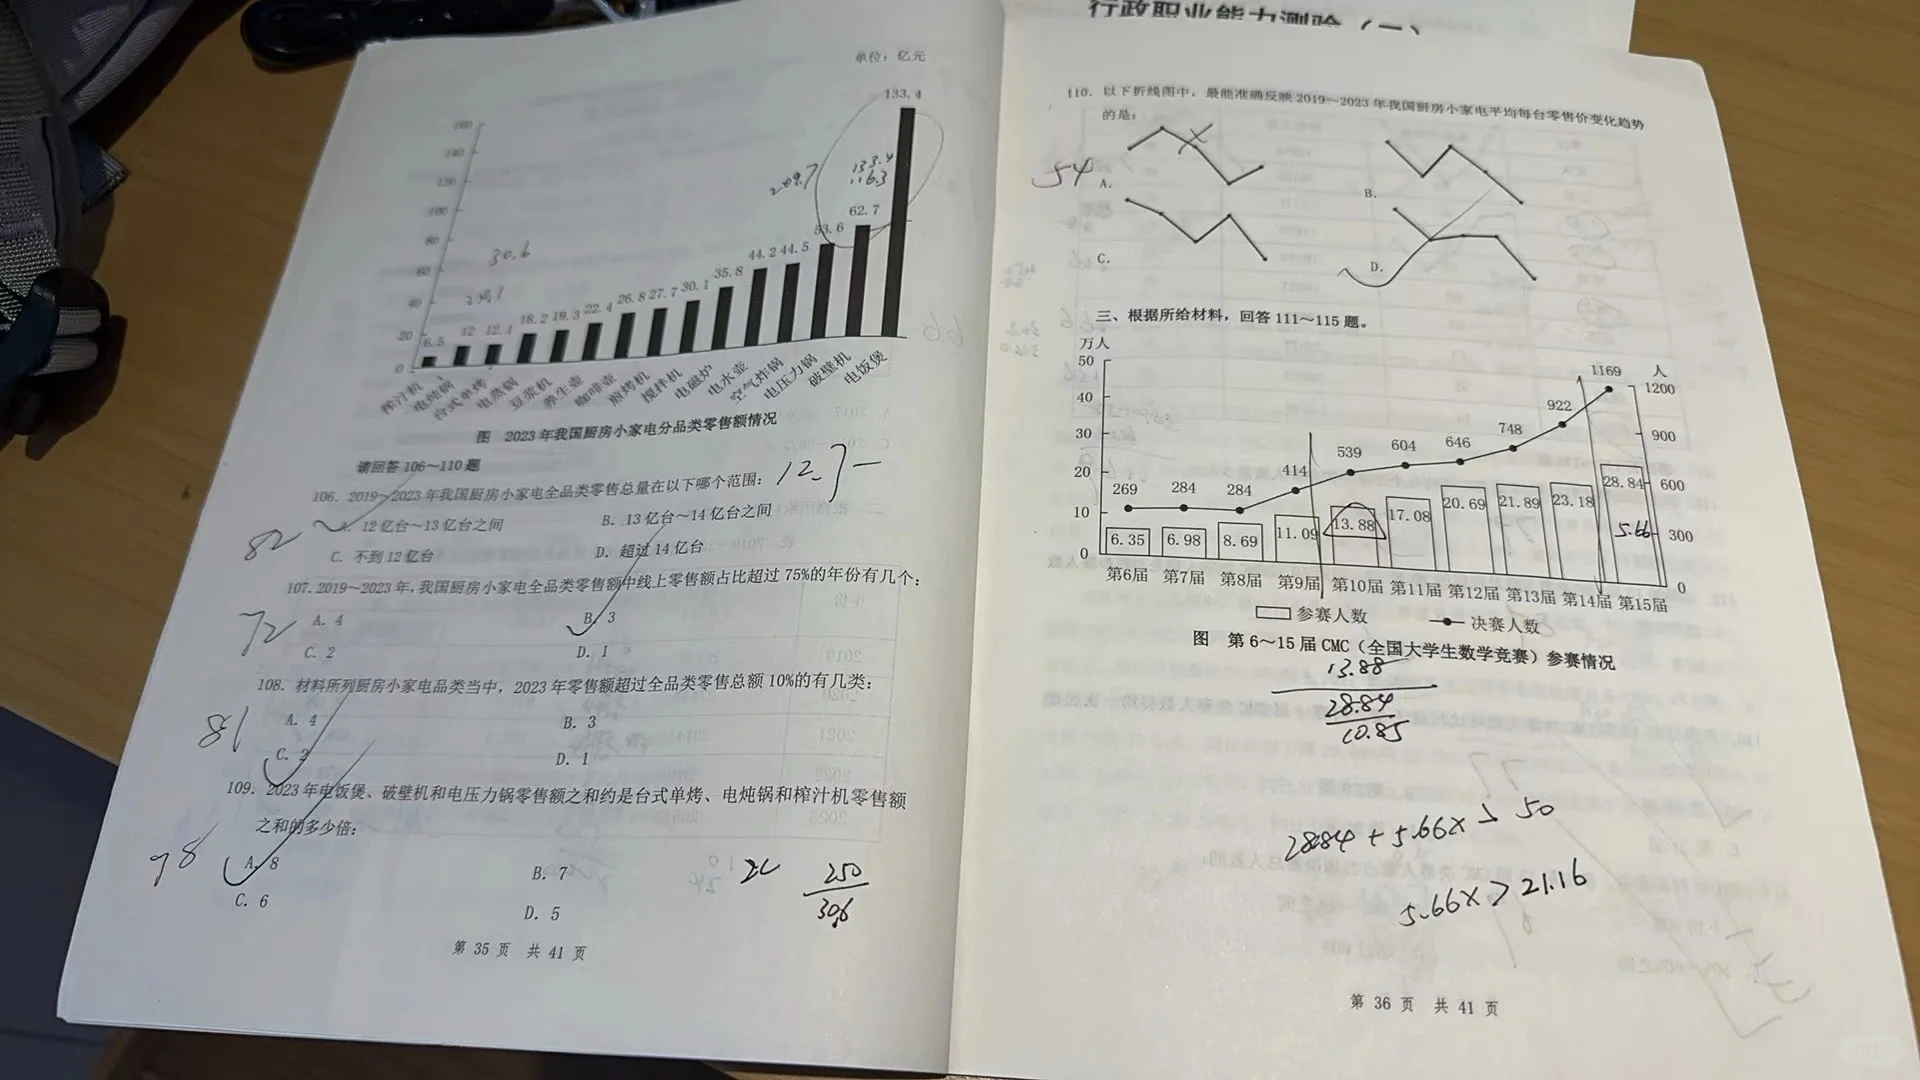 单位：亿元
133.4
160
140
120
100
80
60
40
20
0
209.7
133.4
116.3
30.6
6.5
12
12.4
18.2
19.3
22.4
26.8
27.7
30.1
35.8
44.2
44.5
53.6
62.7
榨汁机
电炖锅
台式单烤
电蒸锅
豆浆机
养生壶
咖啡壶
煎烤机
搅拌机
电磁炉
电水壶
空气炸锅
电压力锅
破壁机
电饭煲
图 2023年我国厨房小家电分品类零售额情况
请回答106～110题
106. 2019～2023年我国厨房小家电全品类零售总量在以下哪个范围：
12.
A. 12亿台～13亿台之间
B. 13亿台～14亿台之间
C. 不到12亿台
D. 超过14亿台
82
107. 2019～2023年，我国厨房小家电全品类零售额中线上零售额占比超过75%的年份有几个：
A. 4
B. 3
C. 2
D. 1
72
108. 材料所列厨房小家电品类当中，2023年零售额超过全品类零售总额10%的有几类：
A. 4
B. 3
C. 2
D. 1
81
109. 2023年电饭煲、破壁机和电压力锅零售额之和约是台式单烤、电炖锅和榨汁机零售额
之和的多少倍：
A. 8
B. 7
C. 6
D. 5
98
250
30.6
第 35 页 共 41 页
行政职业能力测验（二）
110. 以下折线图中，最能准确反映2019～2023年我国厨房小家电平均每台零售价变化趋势
的是：
54
A.
B.
C.
D.
三、根据所给材料，回答111～115题。
万人
人
50
40
30
20
10
0
1200
900
600
300
0
269
284
284
414
539
604
646
748
922
1169
6.35
6.98
8.69
11.09
13.88
17.08
20.69
21.89
23.18
28.84
5.66
第6届 第7届 第8届 第9届 第10届 第11届 第12届 第13届 第14届 第15届
参赛人数
决赛人数
图 第6～15届CMC（全国大学生数学竞赛）参赛情况
13.88
28.84
10.85
28.84 + 5.66x > 50
5.66x > 21.16
第 36 页 共 41 页